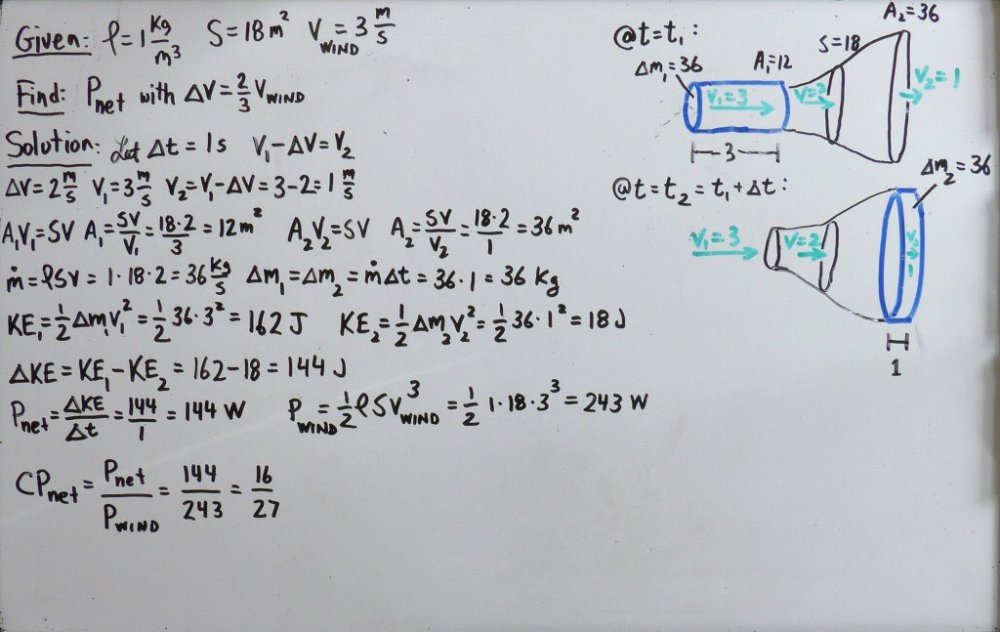 Given: ρ=1 Kg/m³ S=18m² V_WIND=3 m/s
Find: P_net with ΔV=2/3 V_WIND
Solution: Let Δt=1s V₁-ΔV=V₂
ΔV=2 m/s V₁=3 m/s V₂=V₁-ΔV=3-2=1 m/s
A₁V₁=SV A₁=SV/V₁=18·2/3=12m² A₂V₂=SV A₂=SV/V₂=18·2/1=36m²
ṁ=ρSV=1·18·2=36 kg/s Δm₁=Δm₂=ṁΔt=36·1=36 Kg
KE₁=1/2Δm₁V₁²=1/2 36·3²=162 J KE₂=1/2Δm₂V₂²=1/2 36·1²=18 J
ΔKE=KE₁-KE₂=162-18=144 J
P_net=ΔKE/Δt=144/1=144 W P_WIND=1/2ρSV³_WIND=1/2 1·18·3³=243 W
CP_net=P_net/P_WIND=144/243=16/27
@t=t₁:
A₂=36
S=18
A₁=12
Δm₁=36
V₁=3
V=2
V₂=1
3
@t=t₂=t₁+Δt:
Δm₂=36
V₁=3
V=2
V₂
1
1